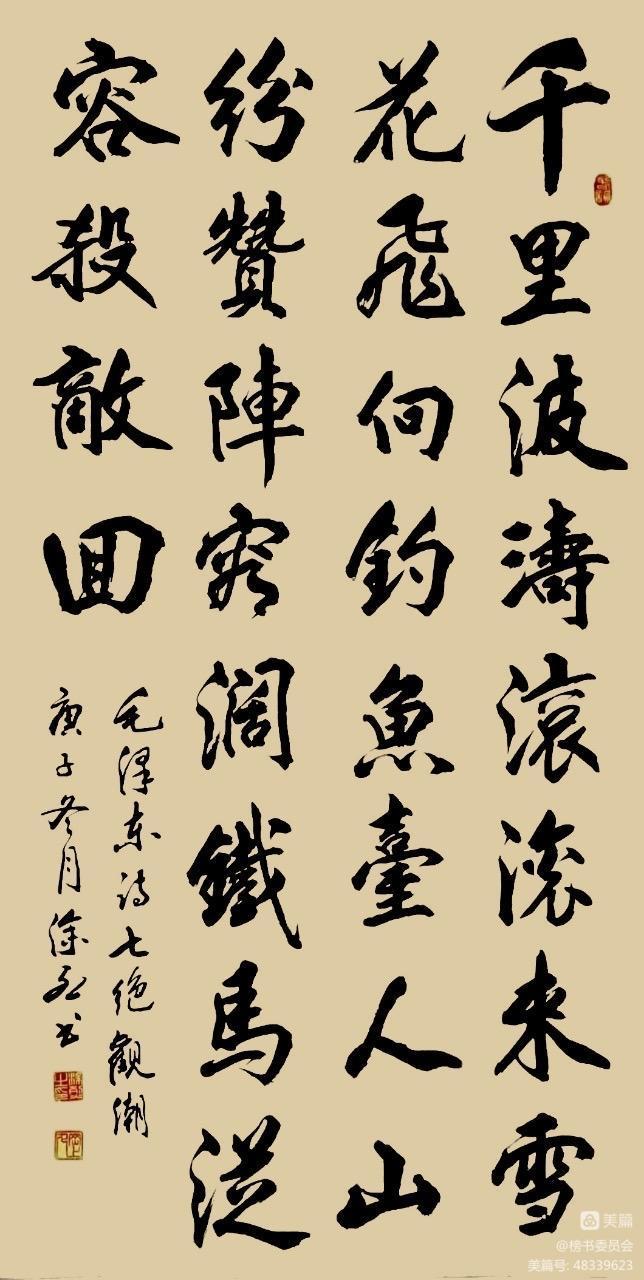 千里波濤滾滾来雪
花飛向釣魚臺人山
紛贊陣容闊鐵馬從
容殺敵回
毛澤東詩七絕觀潮
庚子冬月徐书
美篇
@榜书委员会
美篇号: 48339623